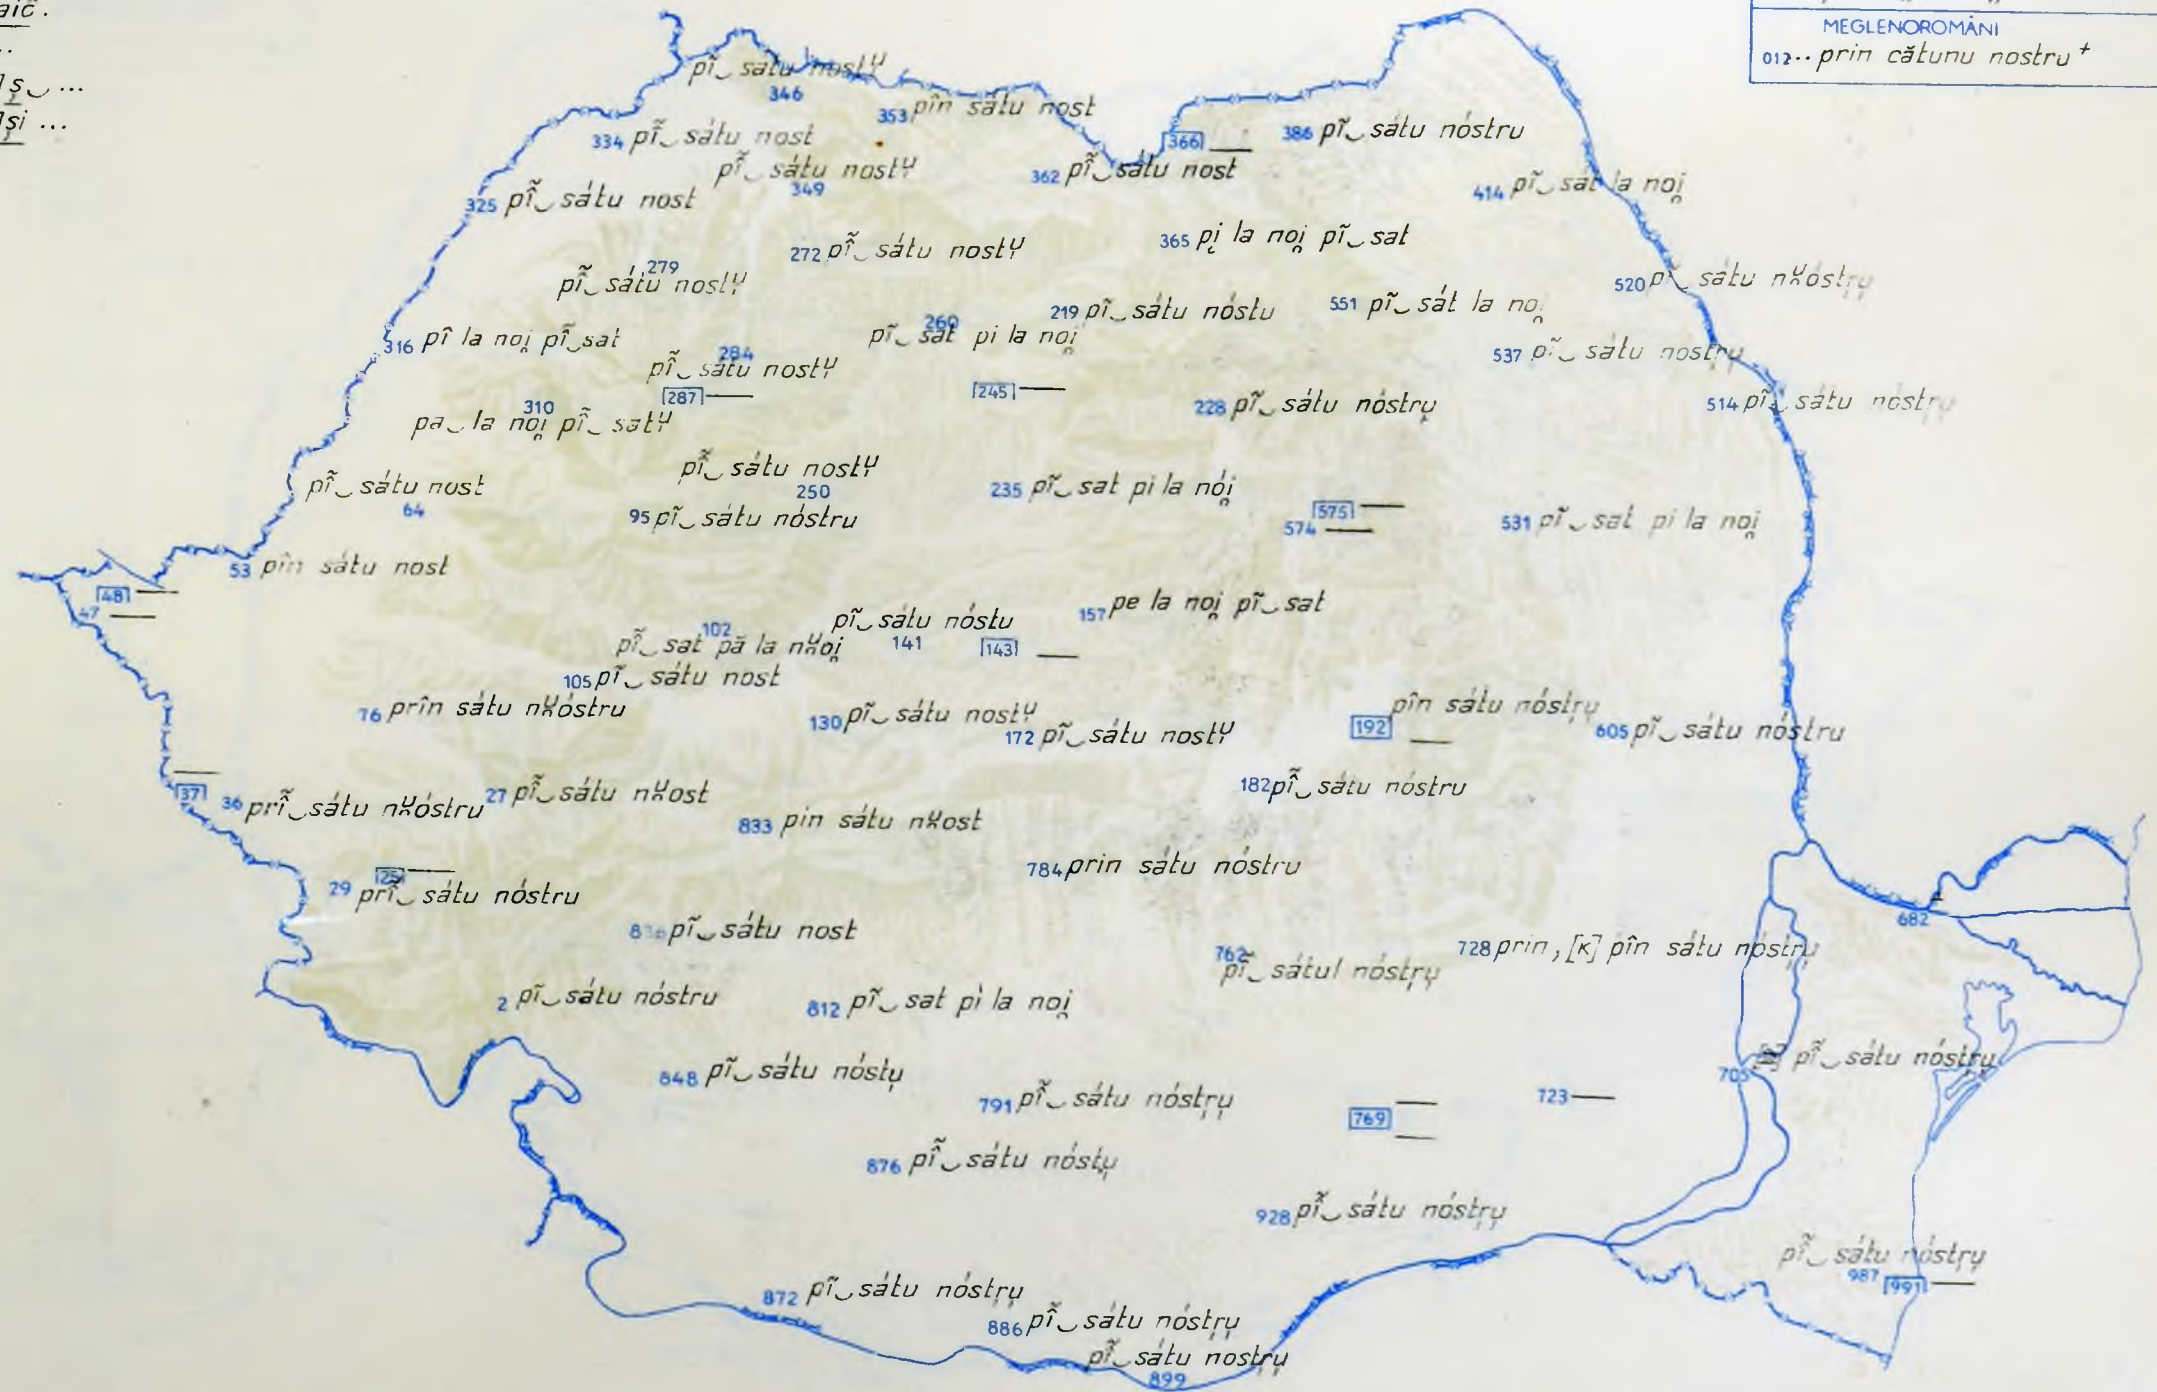 aič.
..
]ș‿ ...
]și ...
MEGLENOROMÂNI
012.. prin cătunu nostru⁺
pĩ‿ sátu nostṷ
346
353 pîn sátu nost
334 pĩ‿ sátu nost
pĩ‿ sátu nostṷ
349
366 —
386 pĩ‿ sátu nóstru
362 pĩ‿ sátu nost
325 pĩ‿ sátu nost
414 pĩ‿ sát la noi̯
272 pĩ‿ sátu nostṷ
365 pi̯ la noi̯ pĩ‿ sat
279
pĩ‿ sátu nostṷ
520 pĩ‿ sátu nu̯óstru̥
219 pĩ‿ sátu nóstu
551 pĩ‿ sát la noi̯
260
pĩ‿ sat pi la noi̯
316 pî la noi̯ pĩ‿ sat
537 pĩ‿ sátu nostru̥
284
pĩ‿ sátu nostṷ
287 —
245 —
310
pa‿ la noi̯ pĩ‿ satṷ
228 pĩ‿ sátu nóstru̥
514 pĩ‿ sátu nóstru̥
pĩ‿ sátu nostṷ
250
pĩ‿ sátu nost
64
235 pĩ‿ sat pi la nói̯
95 pĩ‿ sátu nóstru
575 —
574 —
531 pĩ‿ sat pi la noi̯
53 pîn sátu nost
48 —
47 —
157 pe la noi̯ pĩ‿ sat
pĩ‿ sátu nóstu
141
143 —
102
pĩ‿ sat pă la nu̯oi̯
105 pĩ‿ sátu nost
76 prîn sátu nu̯óstru
130 pĩ‿ sátu nostṷ
172 pĩ‿ sátu nostṷ
pîn sátu nóstru̥
192 —
605 pĩ‿ sátu nóstru
37 —
36 prĩ‿ sátu nu̯óstru
27 pĩ‿ sátu nu̯ost
182 pĩ‿ sátu nóstru
833 pin sátu nu̯ost
784 prin sátu nóstru
25 —
29 prĩ‿ sátu nóstru
836 pĩ‿ sátu nost
682
728 prin, [K] pîn sátu nóstru̥
762
pĩ‿ sátul nóstru̥
2 pĩ‿ sátu nóstru
812 pĩ‿ sat pì la noi̯
848 pĩ‿ sátu nóstu̥
705 pĩ‿ sátu nóstru̥
791 pĩ‿ sátu nóstru̥
769 —
—
723 —
876 pĩ‿ sátu nóstu̥
928 pĩ‿ sátu nóstru̥
pĩ‿ sátu nóstru̥
987
991 —
872 pĩ‿ sátu nóstru̥
886 pĩ‿ sátu nóstru̥
pĩ‿ sátu nostru̥
899